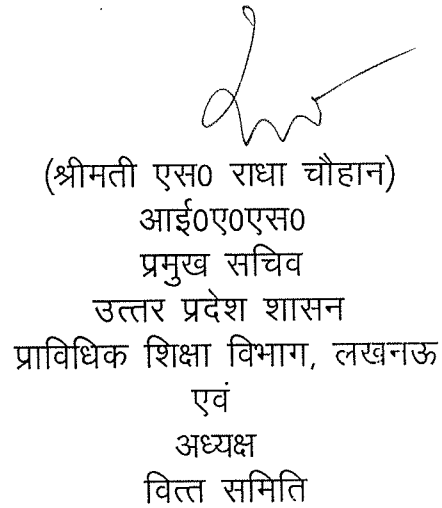 (श्रीमती एस0 राधा चौहान)
आई0ए0एस0
प्रमुख सचिव
उत्तर प्रदेश शासन
प्राविधिक शिक्षा विभाग, लखनऊ
एवं
अध्यक्ष
वित्त समिति